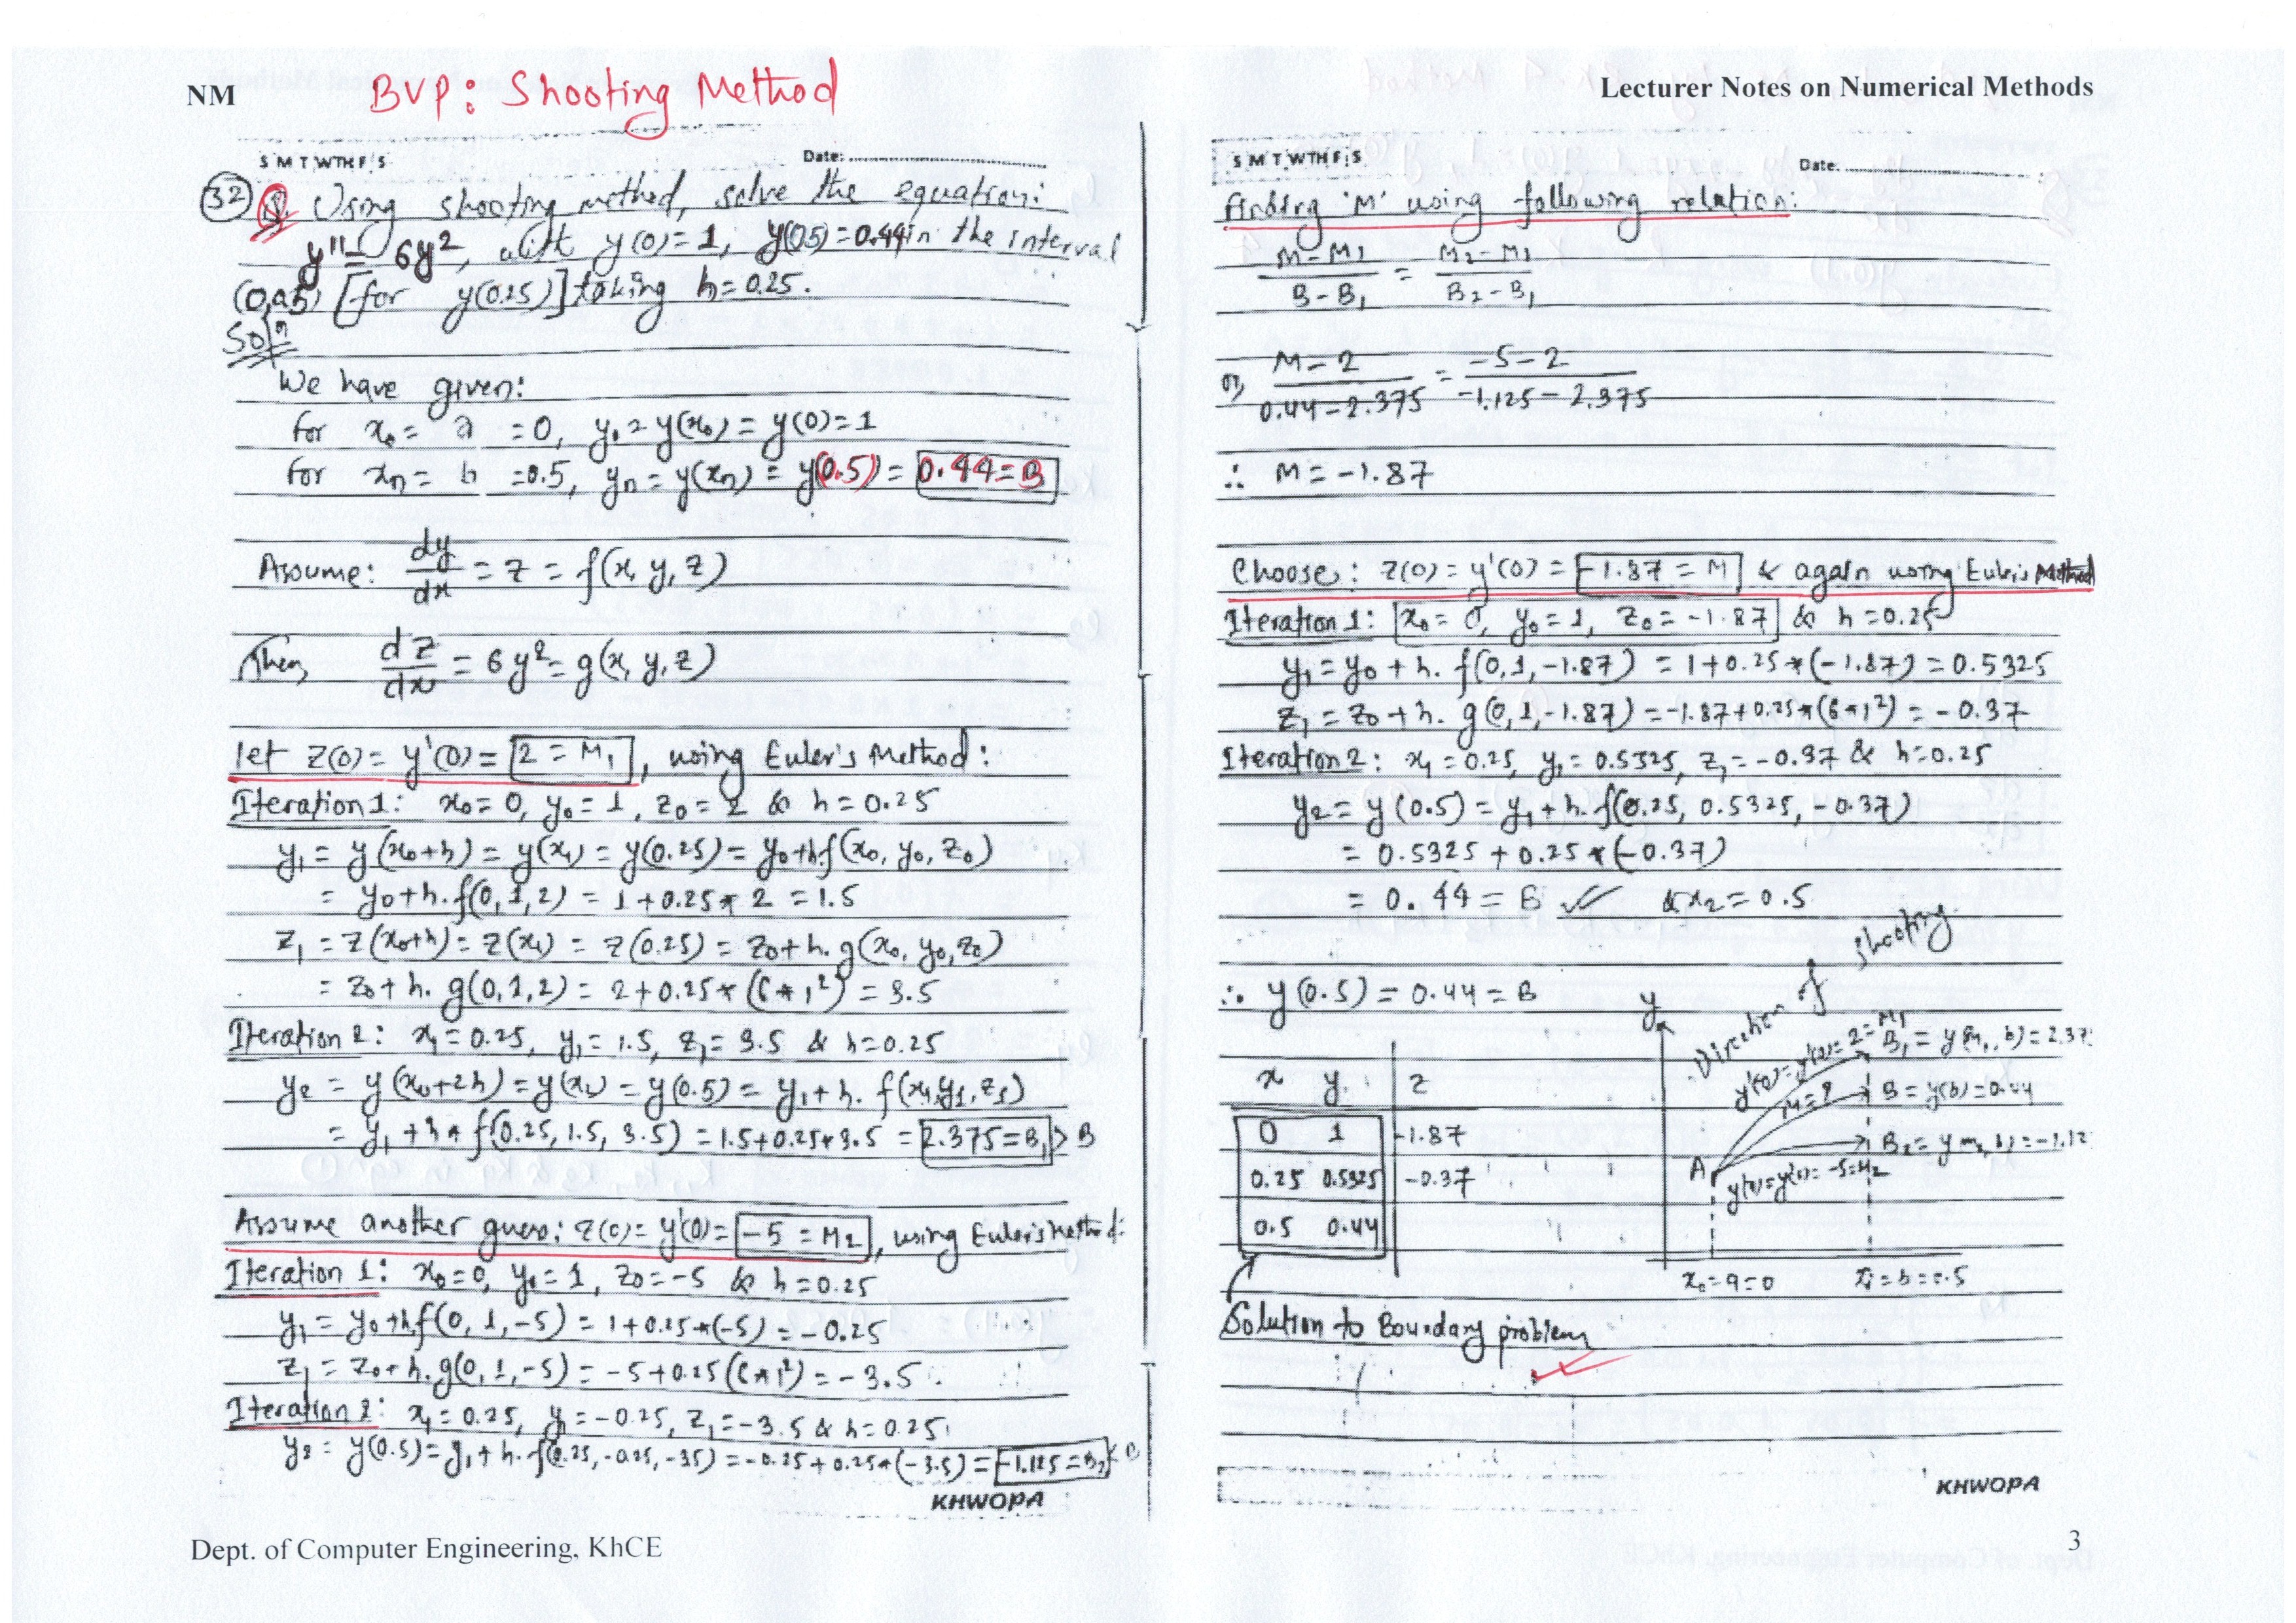 NM
BVP: Shooting Method
Lecturer Notes on Numerical Methods
S M T W TH F S Date:
(32) Q. Using shooting method, solve the equation:
y'' = 6y², with y(0)=1, y(0.5)=0.44 in the interval
(0,0.5) [for y(0.25)] taking h=0.25.
Solⁿ
We have given:
for x₀ = a = 0, y₀ = y(x₀) = y(0) = 1
for xₙ = b = 0.5, yₙ = y(xₙ) = y(0.5) = 0.44 = B
Assume: dy/dx = z = f(x, y, z)
Then, dz/dx = 6y² = g(x, y, z)
let z(0) = y'(0) = 2 = M₁, using Euler's Method:
Iteration 1: x₀ = 0, y₀ = 1, z₀ = 2 & h = 0.25
y₁ = y(x₀+h) = y(x₁) = y(0.25) = y₀+h.f(x₀, y₀, z₀)
= y₀+h.f(0,1,2) = 1+0.25*2 = 1.5
z₁ = z(x₀+h) = z(x₁) = z(0.25) = z₀+h.g(x₀, y₀, z₀)
= z₀+h. g(0,1,2) = 2+0.25*(6*1²) = 3.5
Iteration 2: x₁ = 0.25, y₁ = 1.5, z₁ = 3.5 & h=0.25
y₂ = y(x₀+2h) = y(x₂) = y(0.5) = y₁+h. f(x₁,y₁,z₁)
= y₁+h* f(0.25, 1.5, 3.5) = 1.5+0.25*3.5 = 2.375=B₁ > B
Assume another guess: z(0) = y'(0) = -5 = M₂, using Euler's method:
Iteration 1: x₀=0, y₀=1, z₀=-5 & h=0.25
y₁ = y₀+h.f(0, 1,-5) = 1+0.25*(-5) = -0.25
z₁ = z₀+h.g(0, 1,-5) = -5+0.25(6*1²) = -3.5
Iteration 2: x₁=0.25, y₁=-0.25, z₁=-3.5 & h=0.25
y₂ = y(0.5) = y₁+h.f(0.25,-0.25,-3.5) = -0.25+0.25*(-3.5) = -1.125=B₂ < B
KHWOPA
S M T W TH F S Date:
finding 'M' using following relation:
M-M₁/B-B₁ = M₂-M₁/B₂-B₁
or, M-2/0.44-2.375 = -5-2/-1.125-2.375
∴ M = -1.87
Choose: z(0) = y'(0) = -1.87 = M & again using Euler's Method
Iteration 1: x₀ = 0, y₀ = 1, z₀ = -1.87 & h = 0.25
y₁ = y₀ + h. f(0,1,-1.87) = 1+0.25*(-1.87) = 0.5325
z₁ = z₀+h. g(0,1,-1.87) = -1.87+0.25*(6*1²) = -0.37
Iteration 2: x₁ = 0.25, y₁ = 0.5325, z₁ = -0.37 & h=0.25
y₂ = y(0.5) = y₁+h.f(0.25, 0.5325, -0.37)
= 0.5325 + 0.25*(-0.37)
= 0.44 = B ✓ & x₂ = 0.5
∴ y(0.5) = 0.44 = B
x y z
0 1 -1.87
0.25 0.5325 -0.37
0.5 0.44
Solution to Boundary problem
y
Direction of shooting
y'(0)=y'(a)=2=M₁ B₁ = y(M₁, b) = 2.37
M=? B = y(b) = 0.44
A B₂ = y(M₂, b) = -1.12
y'(0)=y'(a)=-5=M₂
x₀=a=0
=b=0.5
KHWOPA
Dept. of Computer Engineering, KhCE
3